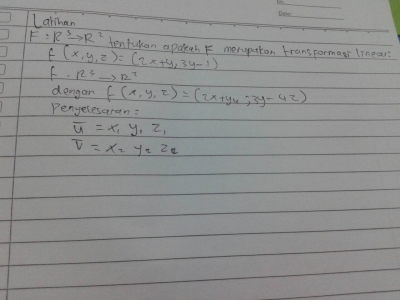 No:
Date:
Latihan
F : R³→R² tentukan apakah F merupakan transformasi linear:
f (x, y, z) = (2x+y, 3y-1)
F : R³ → R²
dengan f (x, y, z) = (2x+y, 3y-4z)
Penyelesaian:
ū = x, y, z,
v̄ = x₂ y₂ z₂